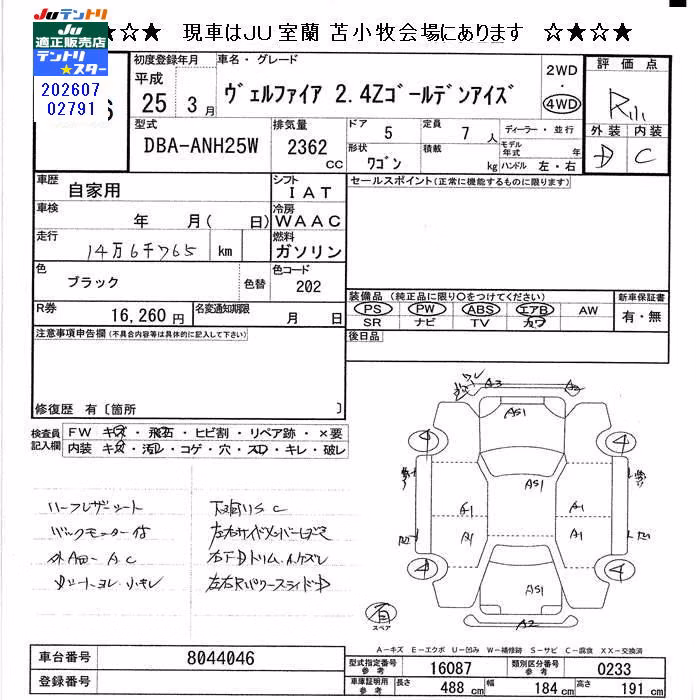 Juテントリ
JU
適正販売店
テントリ
スター
202607
02791
☆★☆ 現車はJU室蘭 苫小牧会場にあります ☆★☆★
6
初度登録年月
平成
25 3月
車名・グレード
ヴェルファイア 2.4Zゴールデンアイズ
2WD
・
4WD
評価点
外装 内装
D C
型式
DBA-ANH25W
排気量
2362
CC
ドア
5
定員
7 人
形状
ワゴン
積載
kg
ディーラー・並行
モデル
年式 年
ハンドル 左・右
車歴
自家用
シフト
I AT
セールスポイント(正常に機能するものに限ります)
車検
年 月( 日)
冷房
WAAC
走行
14万6千765 km
燃料
ガソリン
色
ブラック
色替
色コード
202
装備品 (純正品に限り○をつけてください)
PS PW ABS エアB AW
SR ナビ TV カワ
新車保証書
有・無
R券
16,260 円
名変通知期限
月 日
後日品
注意事項申告欄(不具合内容等は具体的に記入して下さい)
修復歴 有〔箇所 〕
検査員
記入欄
FW キズ・飛石・ヒビ割・リペア跡・×要
内装 キズ・汚れ・コゲ・穴・スレ・キレ・破レ
ハーフレザーシート
バックモニター付
シートヨレ 小キレ
下廻りS C
A3
AS1
4
4
AS1
A1
A1
A1
A1
4
4
AS1
A2
有
スペア
A-キズ E-エクボ U-凹み W-補修跡 S-サビ C-腐食 XX-交換済
車台番号
8044046
登録番号
型式指定番号
参考
16087
類別区分番号
参考
0233
車庫証明用
参考
長さ
488 cm
幅
184 cm
高さ
191 cm